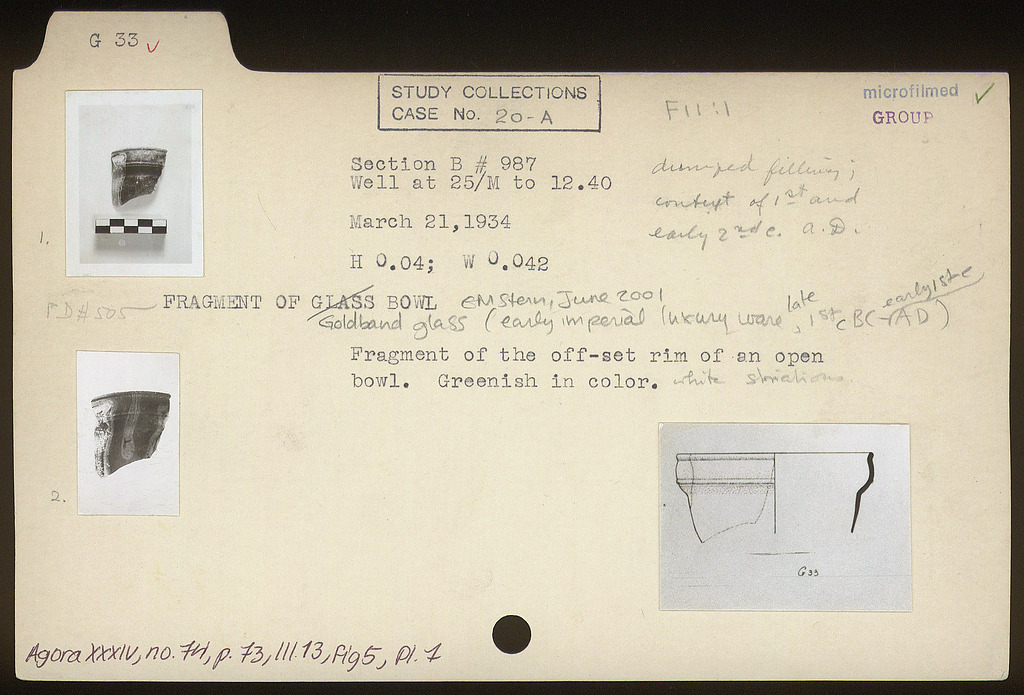 G 33 ✓
STUDY COLLECTIONS
CASE No. 20-A
F 11:1
microfilmed ✓
GROUP
Section B # 987
Well at 25/M to 12.40
March 21,1934
H 0.04; W 0.042
dumped filling;
context of 1st and
early 2nd c. A.D.
1.
PD#505
FRAGMENT OF GLASS BOWL EMStern, June 2001
Goldband glass (early imperial luxury ware, late 1st c BC - early 1st c AD)
Fragment of the off-set rim of an open
bowl. Greenish in color. white striations.
2.
G 33
Agora XXXIV, no. 74, p. 73, Ill 13, Fig 5, Pl. 7